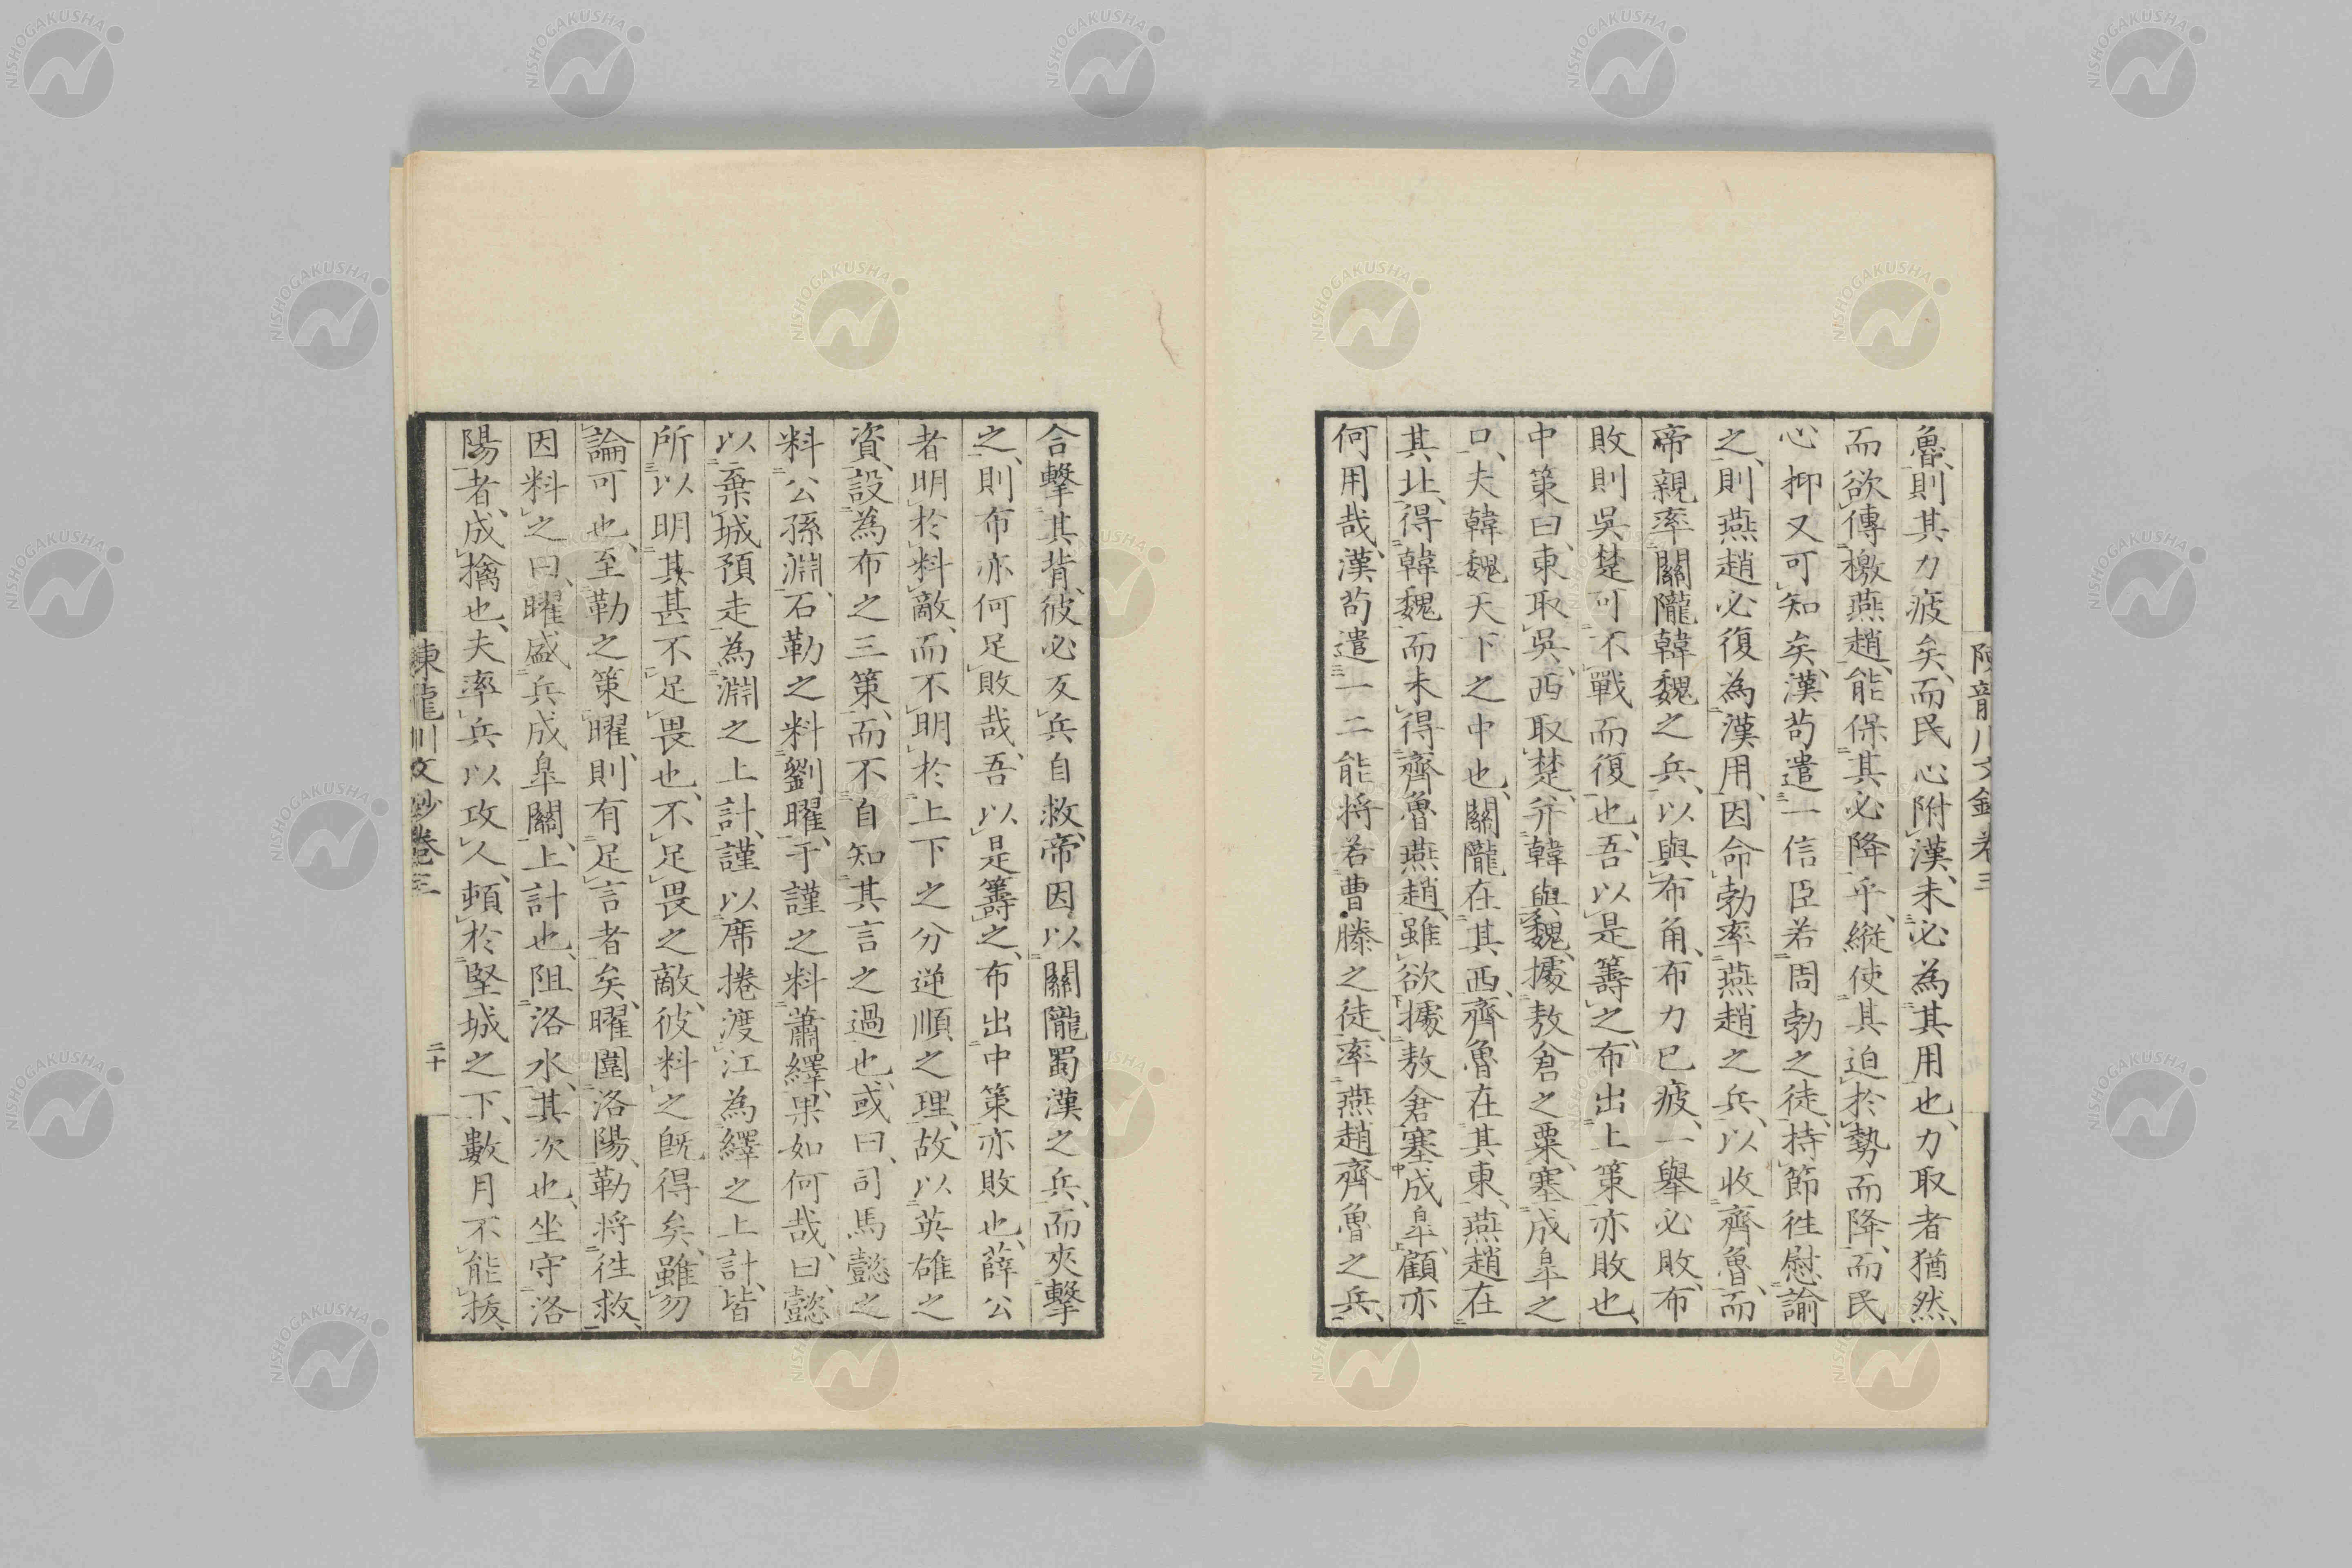 魯、則其力疲矣、而民心附漢、未必為其用也、力取者猶然、
而欲傳檄燕趙、能保其必降乎、縱使其迫於勢而降、而民
心抑又可知矣、漢苟遣一信臣若周勃之徒、持節徃慰諭
之、則燕趙必復為漢用、因命勃率燕趙之兵、以收齊魯、而
帝親率關隴韓魏之兵、以與布角、布力已疲、一舉必敗、布
敗則吳楚可不戰而復也、吾以是籌之、布出上策亦敗也、
中策曰、東取吳、西取楚、并韓與魏、據敖倉之粟、塞成臯之
口、夫韓魏天下之中也、關隴在其西、齊魯在其東、燕趙在
其北、得韓魏而未得齊魯燕趙、雖欲據敖倉塞成臯、顧亦
何用哉、漢苟遣一二能將若曹滕之徒、率燕趙齊魯之兵、
陳龍川文鈔卷三
合擊其背、彼必反兵自救、帝因以關隴蜀漢之兵、而夾擊
之、則布亦何足敗哉、吾以是籌之、布出中策亦敗也、薛公
者明於料敵、而不明於上下之分逆順之理、故以英雄之
資、設為布之三策、而不自知其言之過也、或曰、司馬懿之
料公孫淵、石勒之料劉曜、于謹之料蕭繹、果如何哉、曰、懿
以棄城預走為淵之上計、謹以席捲渡江為繹之上計、皆
所以明其甚不足畏也、不足畏之敵、彼料之既得矣、雖勿
論可也、至勒之策曜、則有足言者矣、曜圍洛陽、勒將徃救、
因料之曰、曜盛兵成臯關、上計也、阻洛水、其次也、坐守洛
陽者、成擒也、夫率兵以攻人、頓於堅城之下、數月不能拔、
陳龍川文鈔卷三
二十
NISHOGAKUSHA